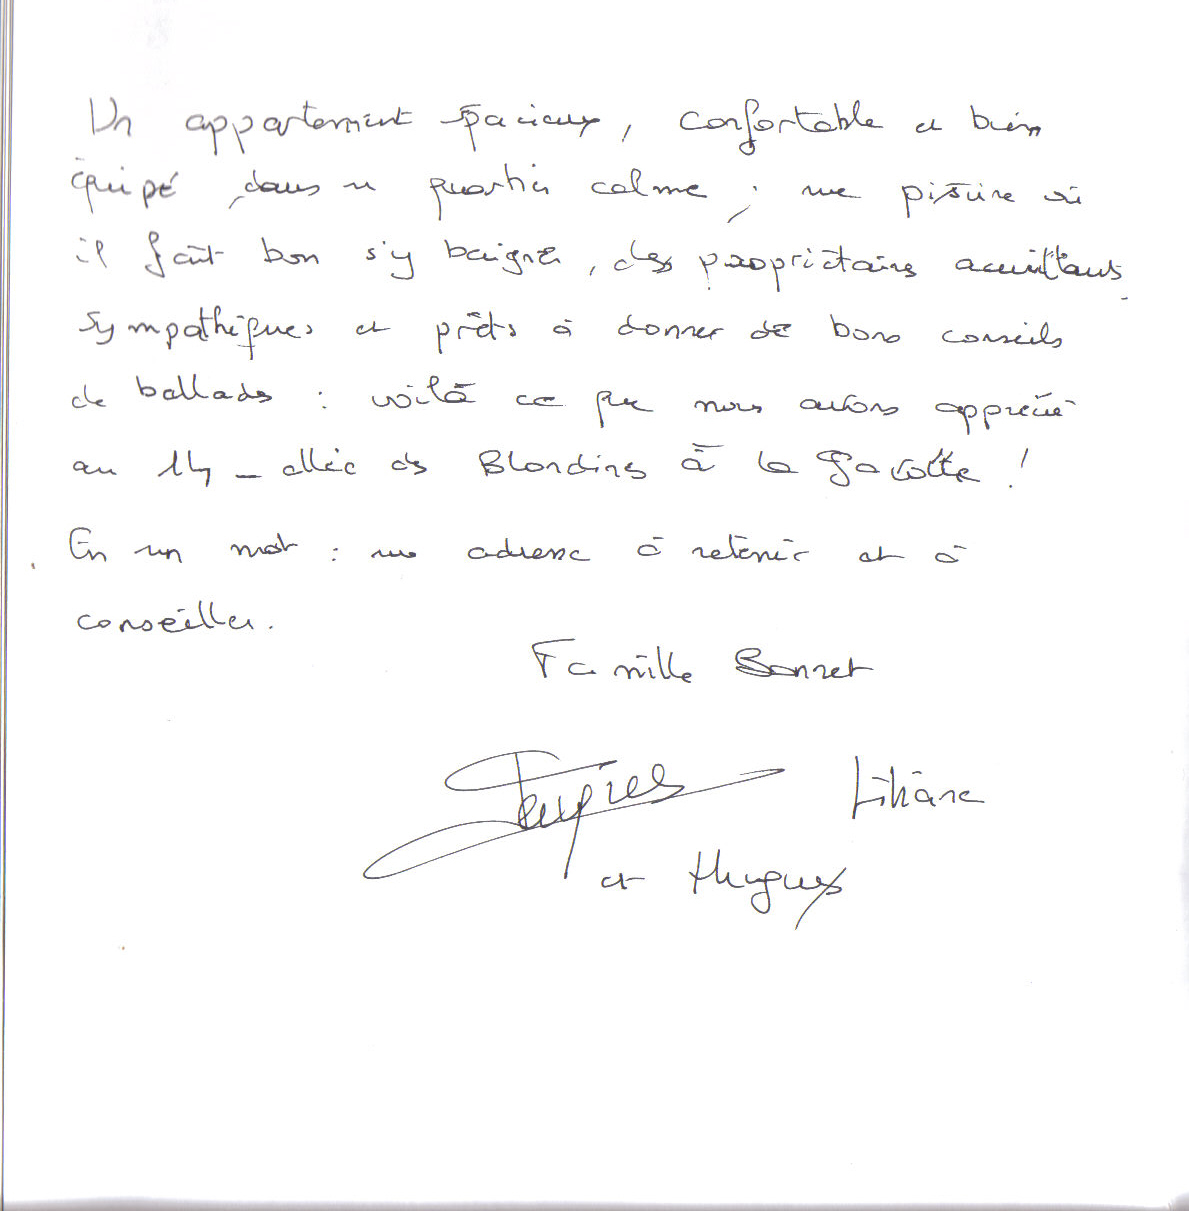 Un appartement spacieux, confortable et bien
équipé, dans un quartier calme ; une piscine où
il fait bon s'y baigner, des propriétaires accueillants
sympathiques et prêts à donner de bons conseils
de ballades : voilà ce que nous avons apprécié
au 114 - allée des Blondins à la Gavotte !
En un mot : une adresse à retenir et à
conseiller.
Famille Bonnet
Liliane
et Hugues